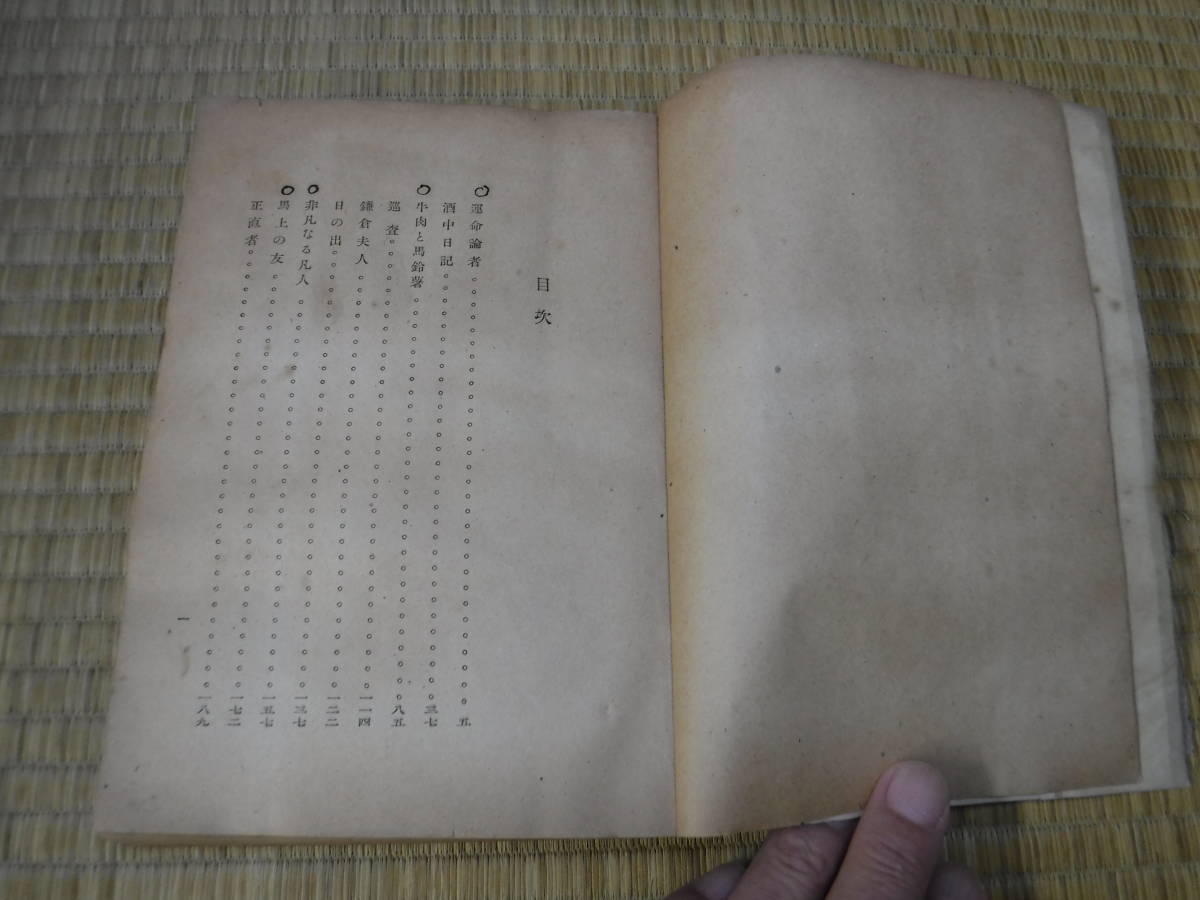 目次
運命論者 。。。。。 五
酒中日記 。。。。。 三七
牛肉と馬鈴薯 。。。。。 八五
巡査 。。。。。 一一四
鎌倉夫人 。。。。。 一二二
日の出 。。。。。 一三七
非凡なる凡人 。。。。。 一五七
馬上の友 。。。。。 一七二
正直者 。。。。。 一八九
一